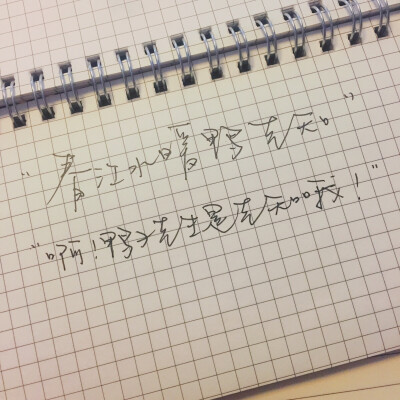 “春江水暖鸭先知”
“啊!鸭子先生是先知哦!”